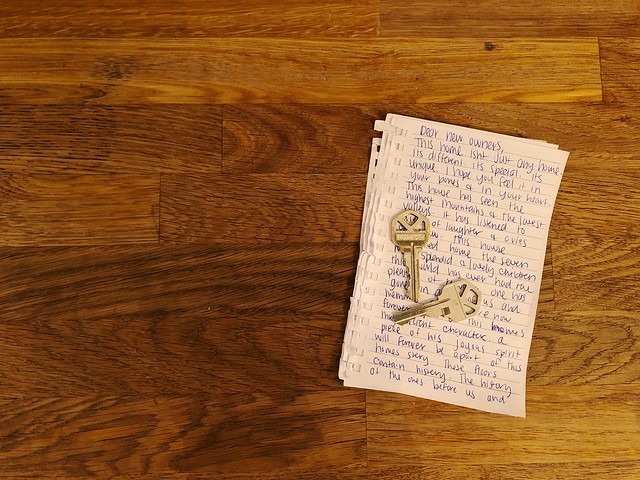 Dear new owners,
This home isnt just any home
its different its special its
unique I hope you feel it in
your bones & in your heart.
This house has seen the
highest mountains & the lowest
valleys it has listened to
of laughter & cries
this house
home the seven
splendid & lovely children
world has ever had the
one has
us and
forever now
character a
piece of his joyous spirit
will forever be apart of this
homes story. These floors
contain history. The history
of the ones before us and